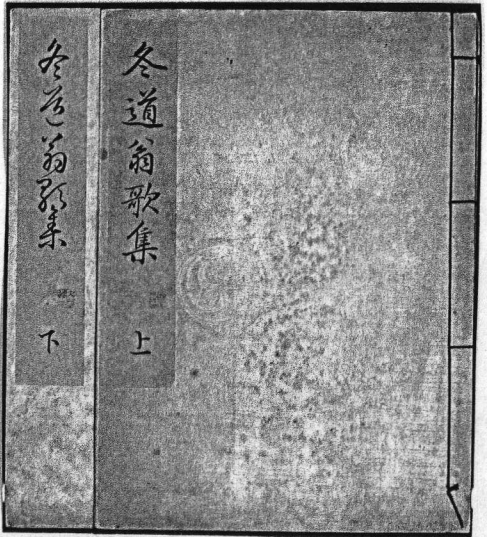 冬道翁歌集 上
冬道翁歌集 下